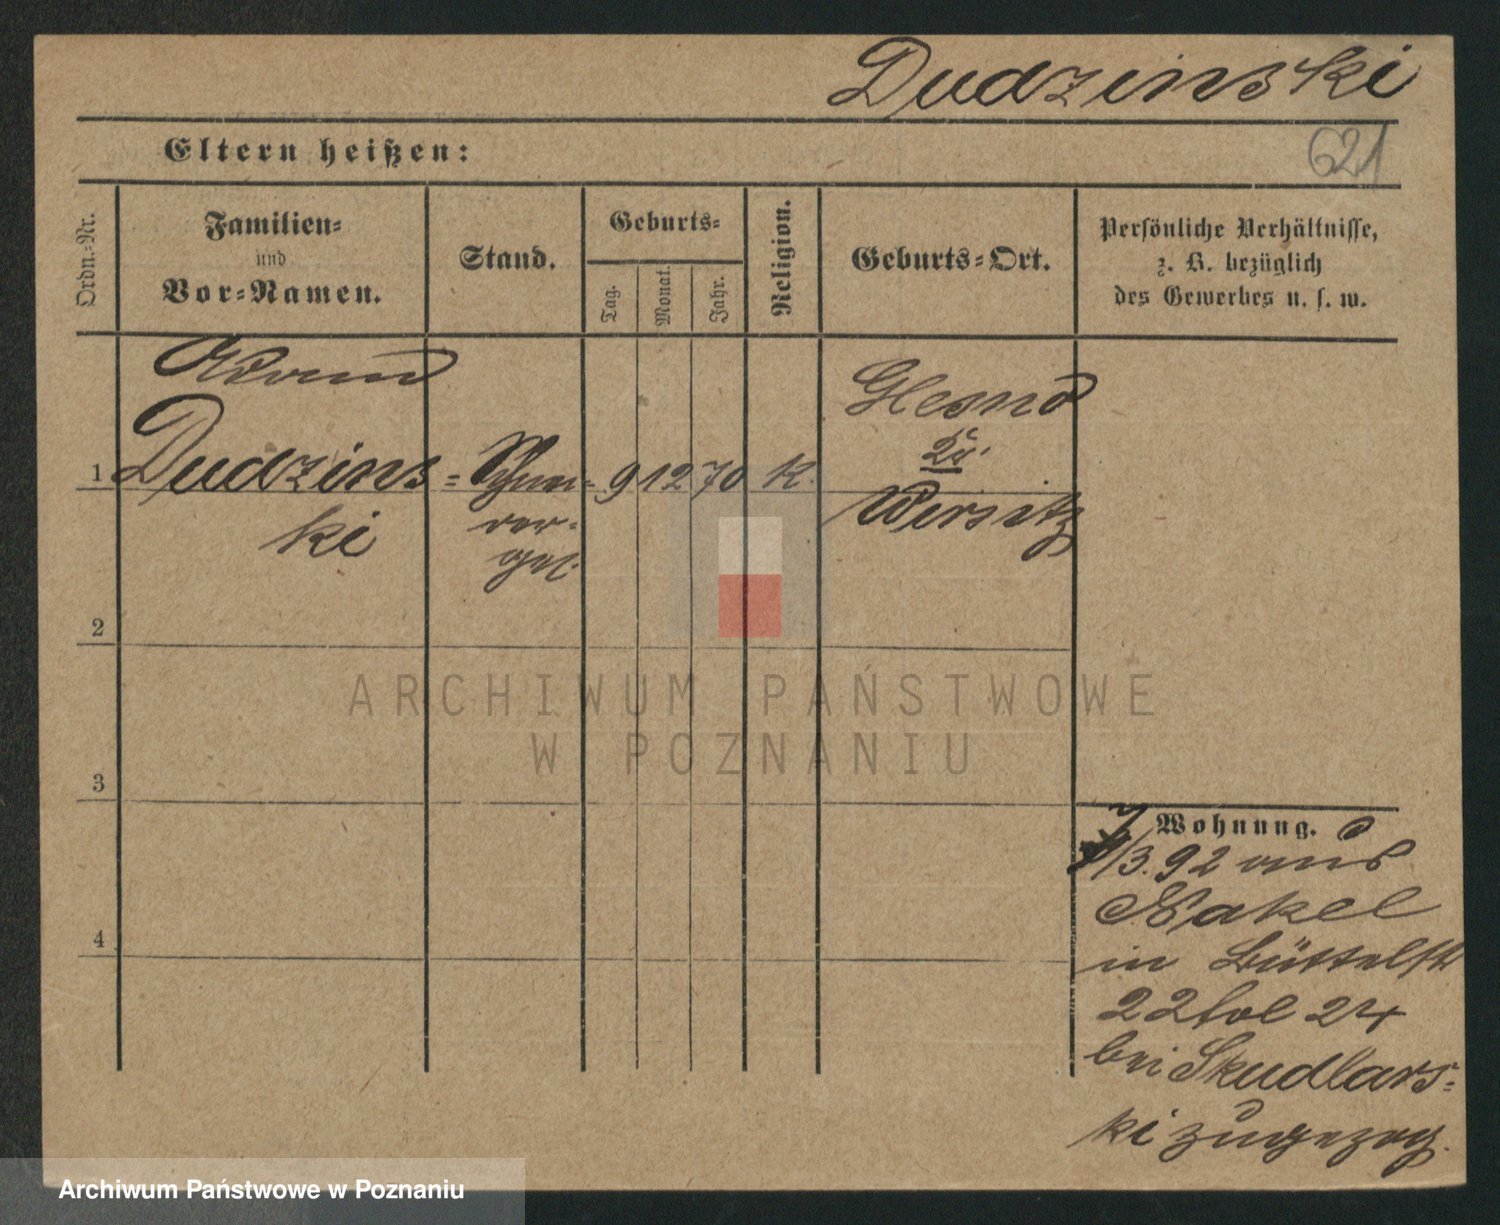 Dudzinski
621
Eltern heißen:
Ordn.-Nr.
Familien-
und
Vor-Namen.
Stand.
Geburts-
Tag.
Monat.
Jahr.
Religion.
Geburts-Ort.
Persönliche Verhältnisse,
z. B. bezüglich
des Gewerbes u. s. w.
Adam
1 Dudzins-
ki
Schnei-
der-
gel.
9 12 70 K.
Glesno
Kr.
Wirsitz
2
3
4
Wohnung.
/3.92 aus
Nakel
in Büttelstr
22 bol 24
bei Skudlars-
ki zugezog.
ARCHIWUM PAŃSTWOWE
W POZNANIU
Archiwum Państwowe w Poznaniu